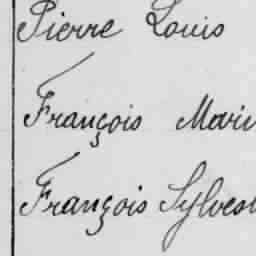 Pierre Louis
François Mari
François Sylves